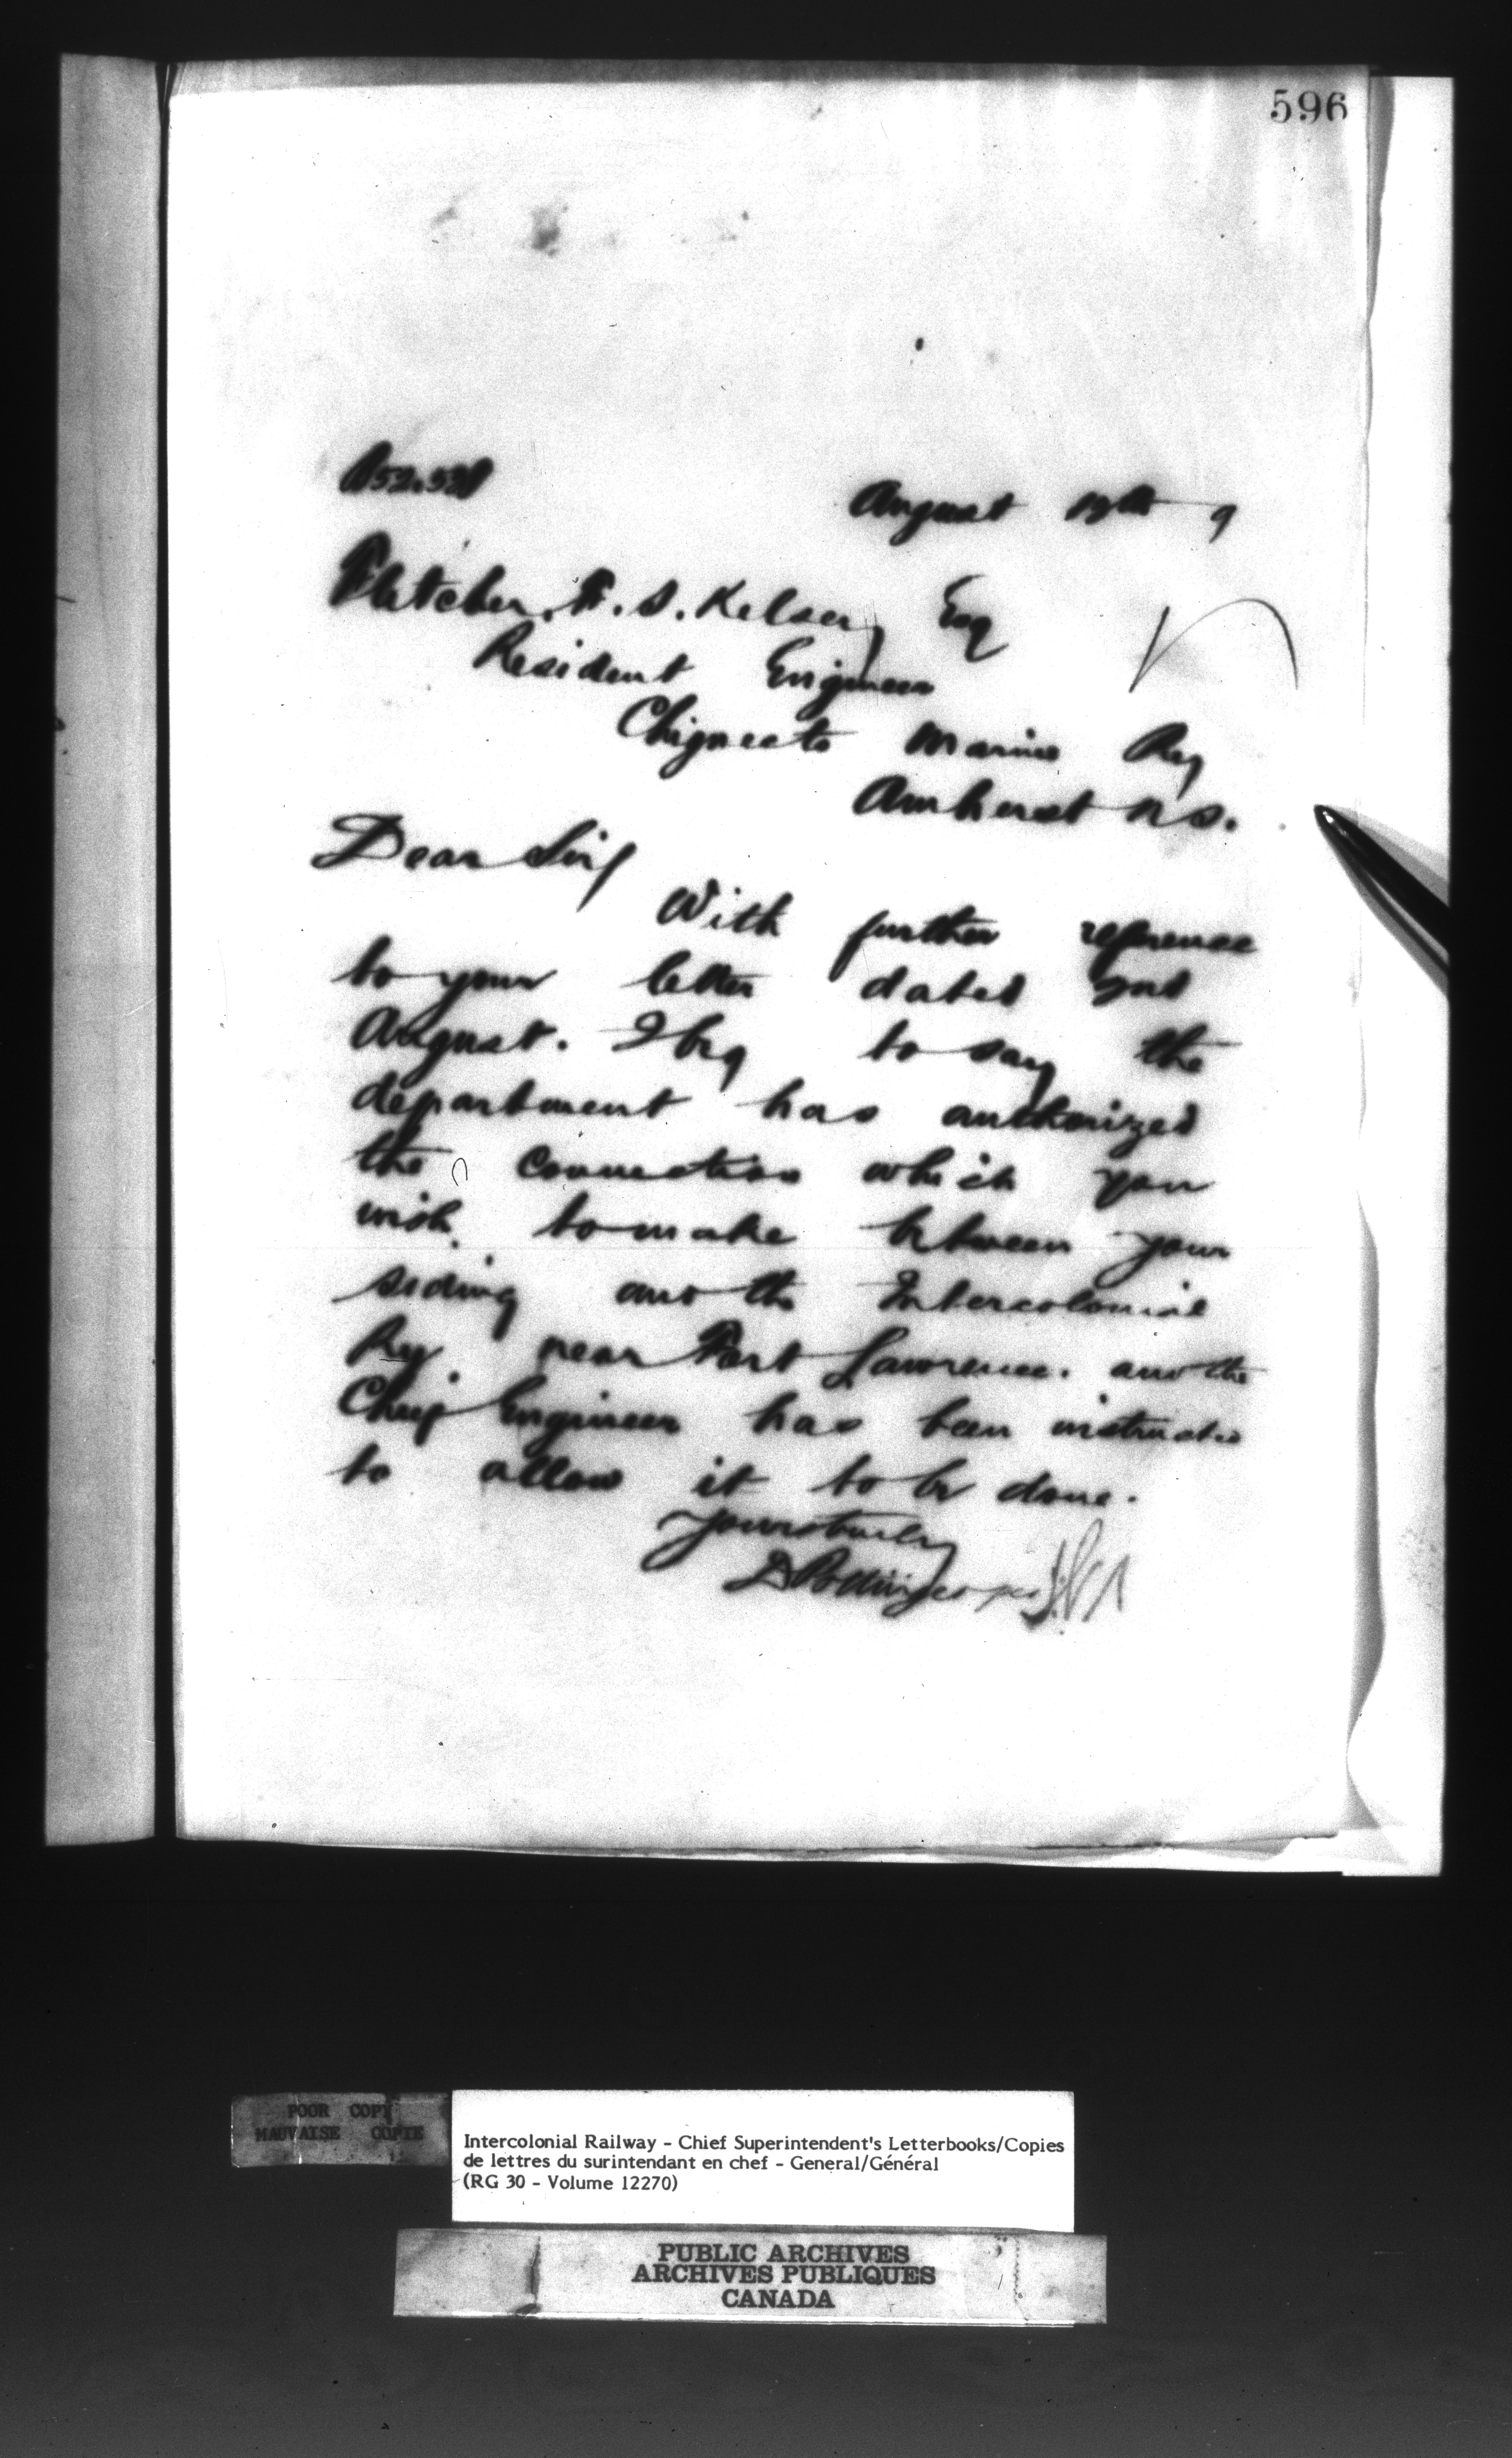 596
August 9
Fletcher. F. S. Kelsey Esq
Resident Engineer
Chignecto Marine Ry
Amherst N S.
Dear Sir
With further reference
to your letter dated 2nd
August. I beg to say the
department has authorized
the connection which you
wish to make between your
siding and the Intercolonial
Ry near Fort Lawrence. and the
Chief Engineer has been instructed
to allow it to be done.
Yours truly
D Pottinger per
POOR COPY
MAUVAISE COPIE
Intercolonial Railway - Chief Superintendent's Letterbooks/Copies
de lettres du surintendant en chef - General/Général
(RG 30 - Volume 12270)
PUBLIC ARCHIVES
ARCHIVES PUBLIQUES
CANADA